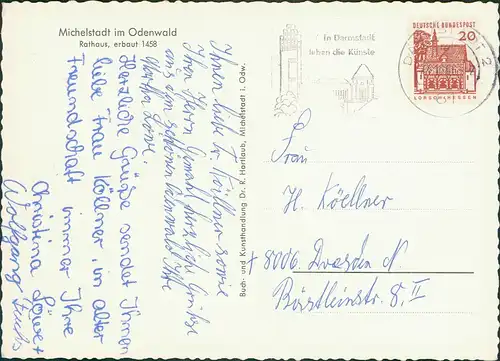 Michelstadt im Odenwald
Rathaus, erbaut 1458
Ihnen liebe Fr. Köllner sowie
Ihren Herrn Gemahl herzliche Grüße
aus dem schönen Odenwald Ihre
Martha Löwe.
Herzliche Grüße sendet Ihnen
liebe Frau Köllner, in alter
Freundschaft immer Ihre
Christina Löwe +
Wolfgang Fuchs
Buch- und Kunsthandlung Dr. R. Hartlaub, Michelstadt i. Odw.
In Darmstadt
leben die Künste
DEUTSCHE BUNDESPOST
20
LORSCH/HESSEN
2
Frau
H. Köellner
+ 8006 Dresden N.
8. II